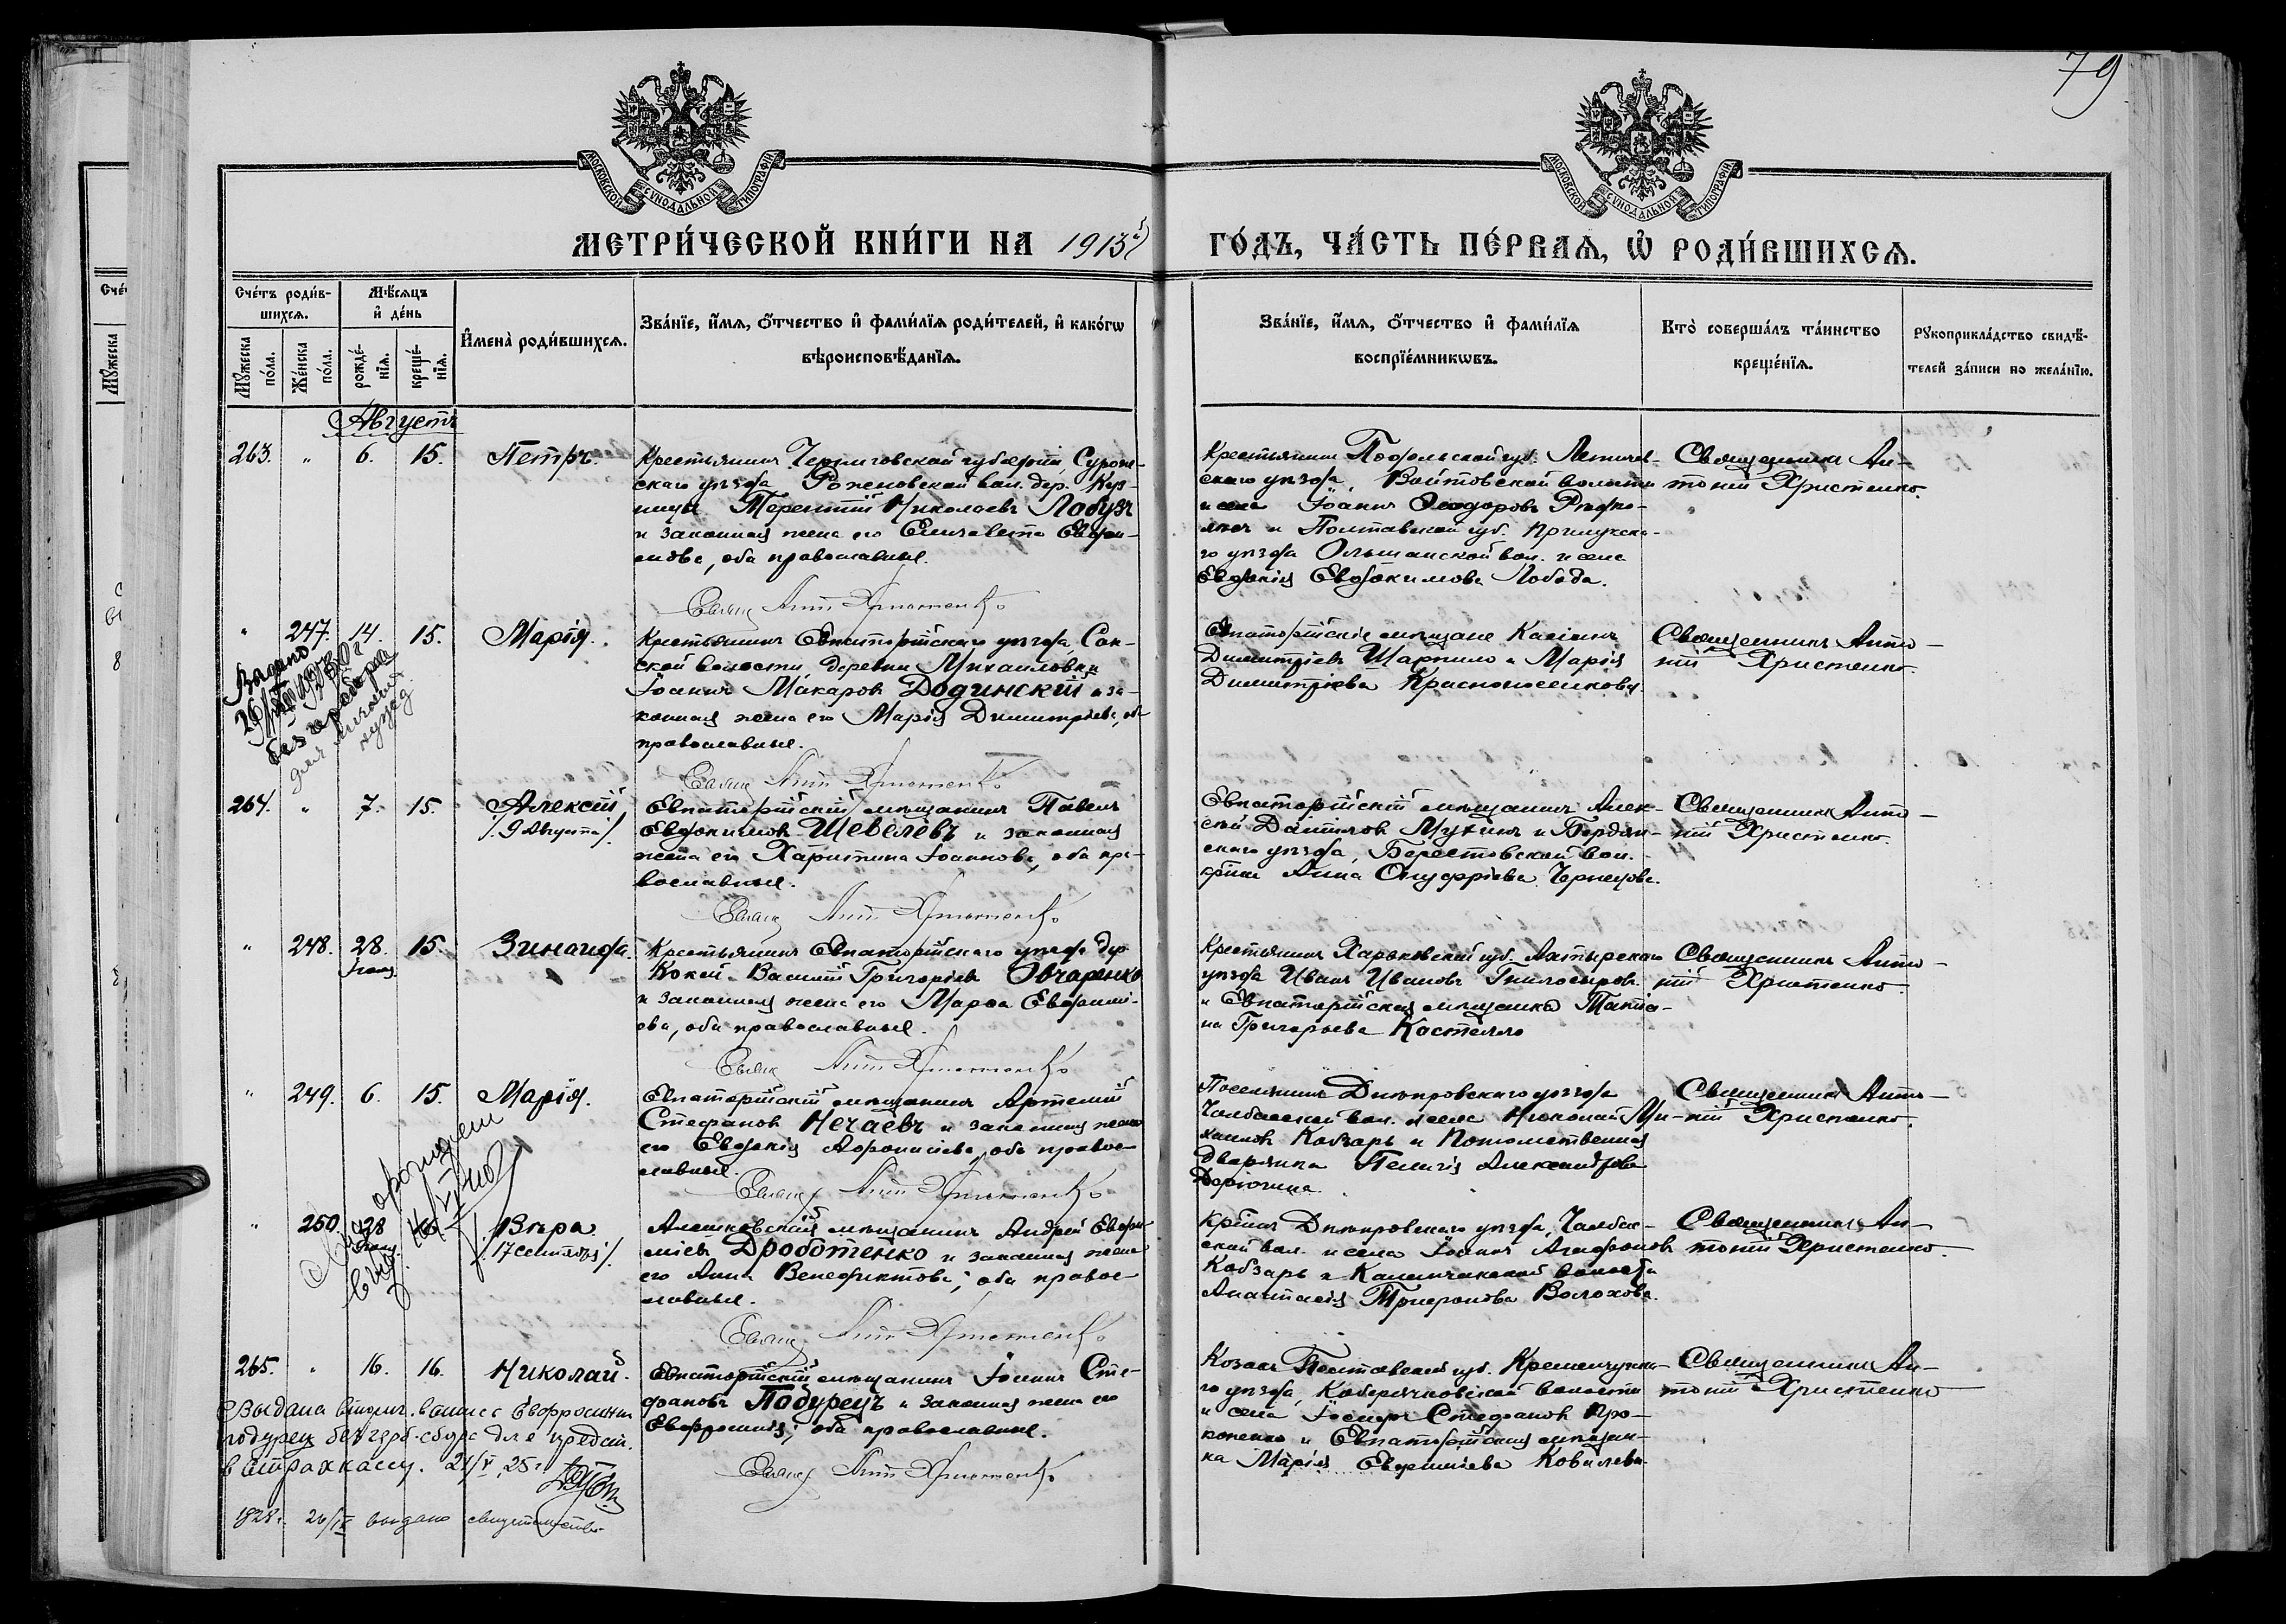 79
МОСКОВСКОЙ СУНОДАЛЬНОЙ ТИПОГРАФІИ
МОСКОВСКОЙ СУНОДАЛЬНОЙ ТИПОГРАФІИ
МЕТРИ́ЧЕСКОЙ КНИ́ГИ НА 1913й ГО́ДЪ, ЧА́СТЬ ПЕ́РВАЯ, Ѡ҆ РОДИ́ВШИХСЯ.
Сче́тъ роди́вшихся.
Мѣ́сяцъ и҆ де́нь
И҆мена̀ роди́вшихся.
Зва́нїе, и҆́мя, ѻ҆́тчество и҆ фами́лїя роди́телей, и҆ како́гѡ вѣроисповѣ́данїя.
Зва́нїе, и҆́мя, ѻ҆́тчество и҆ фами́лїя воспрїе́мникѡвъ.
Кто̀ соверша́лъ та́инство креще́нїя.
Рꙋкоприкла́дство свидѣ́телей за́писи по жела́нїю.
Мꙋ́жеска по́ла.
Же́нска по́ла.
рожде́нїя.
креще́нїя.
Августъ
263. " 6. 15. Петръ.
Крестьянинъ Черниговской губерніи, Сураж-
скаго уѣзда Роженовской вол. дер.
Терентій Николаевъ Лобузъ
и законная жена его Елизавета
оба православные.
Свящ. Ант. Христенко
Крестьянинъ Подольской губ. Летичев-
скаго уѣзда, Войтовской волости
и села Іоаннъ Ѳеодоровъ
и Полтавской губ. Прилукска-
го уѣзда Ольшанской вол. и села
Евдокія Евдокимова Лобода.
Священникъ Ан-
тоній Христенко.
" 247. 14. 15. Марія.
Выдано
без гербсбора
для личных
нужд.
Крестьянинъ Евпаторійскаго уѣзда, Сак-
ской волости, деревни Михайловки
Іоаннъ Макаровъ Додинскій и за-
конная жена его Марія Димитріева, оба
православные.
Свящ. Ант. Христенко
Евпаторійскіе мѣщане
Димитріевъ Шарпило и Марія
Димитріева Красноколенкова.
Священникъ Анто-
ній Христенко.
264. " 7. 15. Алексій
/. 9 Августа /.
Евпаторійскій мѣщанинъ Павелъ
Евдокимовъ Шевелевъ и законная
жена его Харитина Іоаннова, оба пра-
вославные.
Свящ. Ант. Христенко
Евпаторійскій мѣщанинъ Алек-
сій Даниловъ Мухинъ и Бердян-
скаго уѣзда, Берестовской вол.
Анна Онуфріева Чернецова.
Священникъ Анто-
ній Христенко.
" 248. 28. 15. Зинаида.
Крестьянинъ Евпаторійскаго уѣзда дер.
Кокей Василій Григорьевъ Овчаренко
и законная жена его Марѳа Евфимі-
ева, оба православные.
Свящ. Ант. Христенко
Крестьянинъ Харьковской губ. Ахтырскаго
уѣзда Иванъ Ивановъ Гнилосыровъ
и Евпаторійская мѣщанка Татья-
на Григорьева Костелло
Священникъ Анто-
ній Христенко.
" 249. 6. 15. Марія.
Евпаторійскій мѣщанинъ Артемій
Стефановъ Нечаевъ и законная жена
его Евдокія оба право-
славные.
Свящ. Ант. Христенко
Поселянинъ Днѣпровскаго уѣзда
Чалбасской вол. и села Николай Ми-
хаиловъ Кобзарь и Потомственная
дворянка Пелагія Александрова
Священникъ Анто-
ній Христенко.
" 250. 28 Вѣра.
/. 17 сентября /.
Алешковскій мѣщанинъ Андрей Евфи-
міевъ Дроботенко и законная жена
его Анна Венедиктова, оба право-
славные.
Свящ. Ант. Христенко
Днѣпровскаго уѣзда, Чалбас-
ской вол. и села Іоаннъ Агафоновъ
Кобзарь и Каланчакской волости
Анастасія Трифонова Волохова.
Священникъ Ан-
тоній Христенко.
265. " 16. 16. Николай.
Евпаторійскій мѣщанинъ Іоаннъ Сте-
фановъ Подурецъ и законная жена его
Евфросинія, оба православные.
Свящ. Ант. Христенко
Козакъ Полтавской губ. Кременчугска-
го уѣзда, Кобелячковской волости
и села Іосифъ Стефановъ Про-
копенко и Евпаторійская мѣщан-
ка Марія Евфиміева Ковалева.
Священникъ Ан-
тоній Христенко
Выдана Евфросинии
Подурец без герб. сбора для предст.
в страхкассу. 21/V 25 г.
1928 г. 26/IX выдано свидетельство